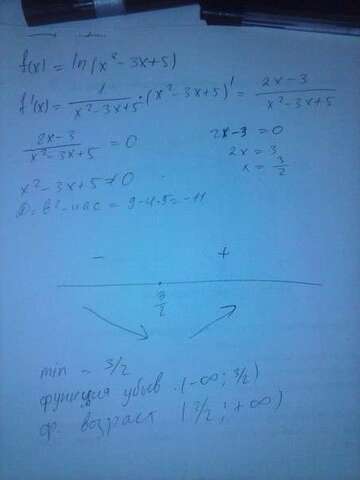 f(x) = ln(x² - 3x + 5)
f'(x) = 1/(x² - 3x + 5) · (x² - 3x + 5)' = (2x - 3)/(x² - 3x + 5)
(2x - 3)/(x² - 3x + 5) = 0
2x - 3 = 0
2x = 3
x = 3/2
x² - 3x + 5 ≠ 0
D = b² - 4ac = 9 - 4·5 = -11
- +
3/2
min - 3/2
функция убыв. (-∞; 3/2)
ф. возраст (3/2; +∞)